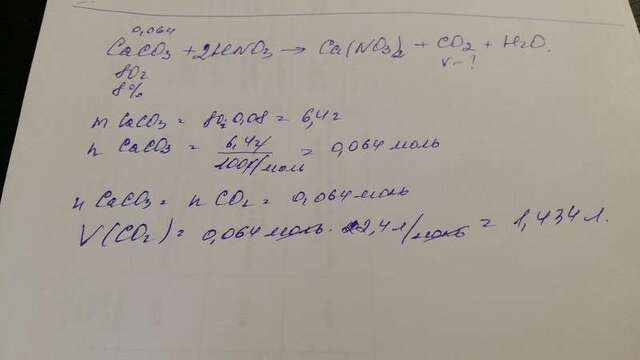 0,064
CaCO3 + 2HNO3 → Ca(NO3)2 + CO2 + H2O.
80г V-?
8%
m CaCO3 = 80г·0,08 = 6,4г
n CaCO3 = 6,4г/100г/моль = 0,064 моль
n CaCO3 = n CO2 = 0,064 моль
V(CO2) = 0,064 моль · 22,4 л/моль = 1,434 л.